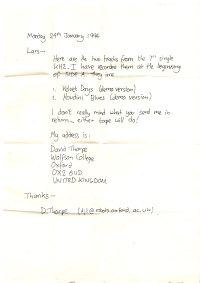 Monday 29th January 1996
Lars—
Here are the two tracks from the 7" single
KH2. I have recorded them at the beginning
of SIDE A. They are
1. Velvet Days (demo version)
2. Houdini Blues (demo version)
I don't really mind what you send me in
return — either tape will do!
My address is:
David Thorpe
Wolfson College
Oxford
OX2 6UD
UNITED KINGDOM
Thanks —
D. Thorpe (djt@robots.oxford.ac.uk)